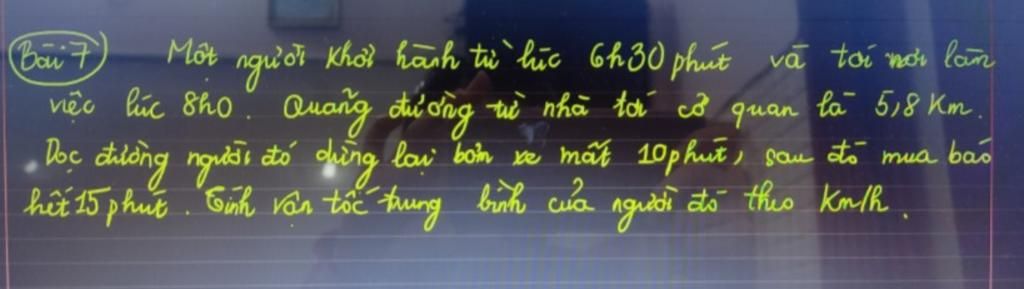 Bài 7 Một người khởi hành từ lúc 6h30 phút và tới nơi làm
việc lúc 8h0. Quãng đường từ nhà tới cơ quan là 5,8 Km.
Dọc đường người đó dừng lại bơm xe mất 10 phút, sau đó mua báo
hết 15 phút. Tính vận tốc trung bình của người đó theo Km/h.